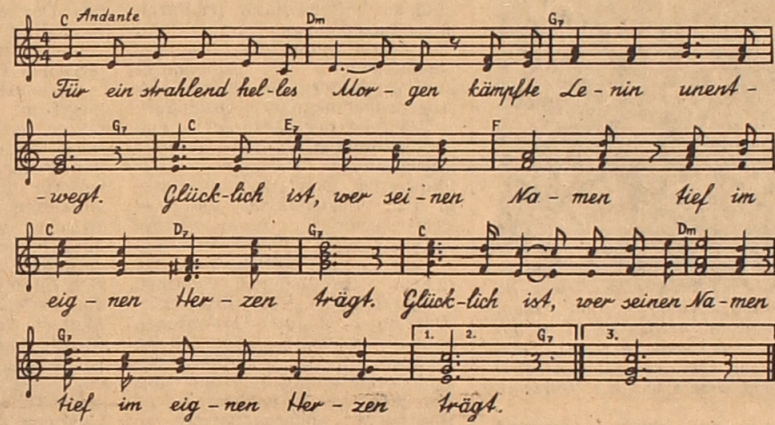 C Andante Dm G7
4 4
Für ein strahlend hel-les Mor - gen kämpfte Le - nin unent -
G7 C E7 F
- wegt. Glück-lich ist, wer sei - nen Na - men tief im
C D7 G7 C Dm
eig - nen Her - zen trägt. Glück-lich ist, wer seinen Na - men
G7 1. 2. G7 3.
tief im eig - nen Her - zen trägt.